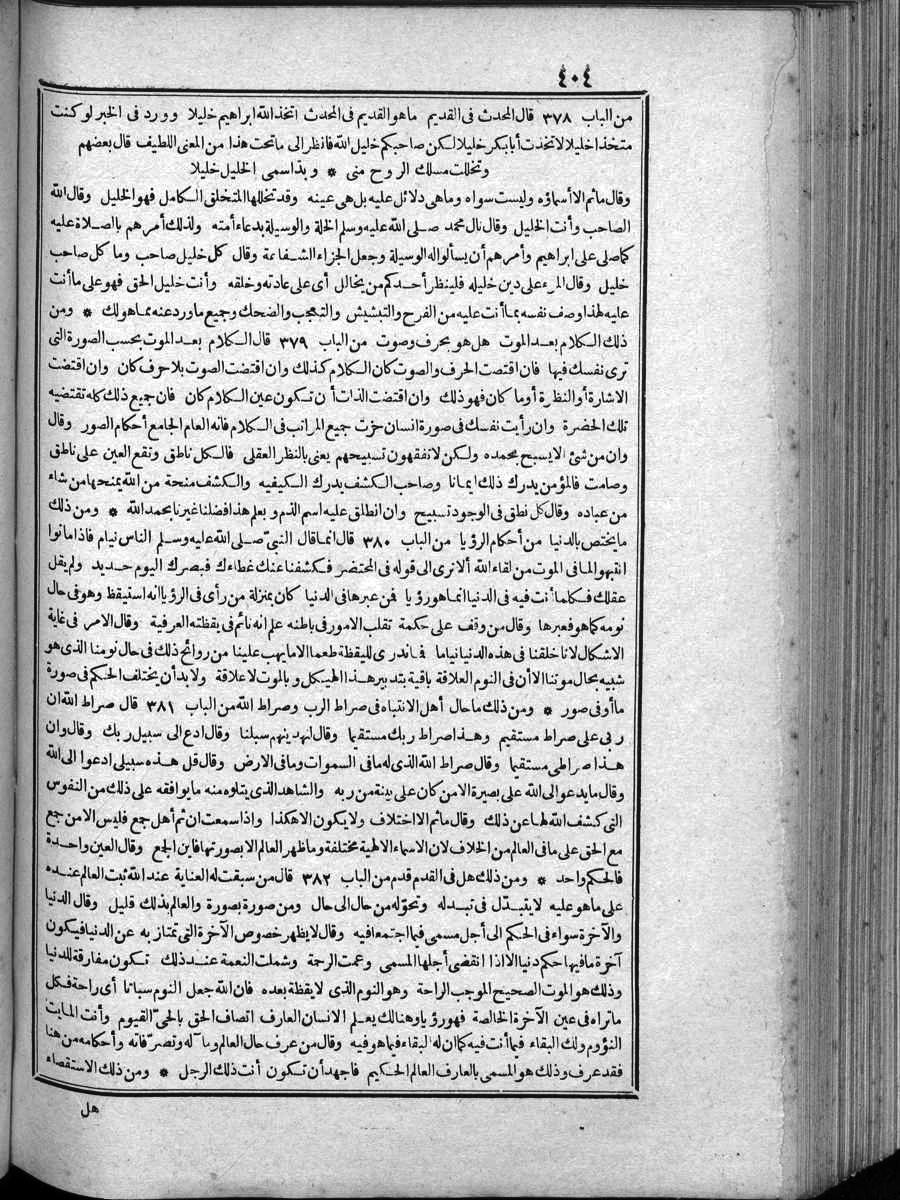 ٤٠٤
من الباب ٣٧٨ قال المحدث فى القديم ماهو القديم فى المحدث اتخذ الله ابراهيم خليلا وورد فى الخبر لو كنت
متخذا خليلا لاتخذت أبا بكر خليلا لكن صاحبكم خليل الله فانظر الى ماتحت هذا من المعنى اللطيف قال بعضهم
وتخللت مسلك الروح منى * وبذا سمى الخليل خليلا
وقال ماثم الا أسماؤه وليست سواه وماهى دلائل عليه بل هى عينه وقد تخللها المتخلق الكامل فهو الخليل وقال الله
الصاحب وأنت الخليل وقال نال محمد صلى الله عليه وسلم الخلة والوسيلة بدعاء أمته ولذلك أمرهم بالصلاة عليه
كماصلى على ابراهيم وأمرهم أن يسألوا له الوسيلة وجعل الجزاء الشفاعة وقال كل خليل صاحب وما كل صاحب
خليل وقال المرء على دين خليله فلينظر أحدكم من يخالل أى على عادته وخلقه وأنت خليل الحق فهو على ما أنت
عليه لهذا وصف نفسه بما أنت عليه من الفرح والتبشيش والتعجب والضحك وجميع ماورد عنه مما هولك * ومن
ذلك الكلام بعد الموت هل هو بحرف وصوت من الباب ٣٧٩ قال الكلام بعد الموت بحسب الصورة التى
ترى نفسك فيها فان اقتضت الحرف والصوت كان الكلام كذلك وان اقتضت الصوت بلا حرف كان وان اقتضت
الاشارة أو النظرة أوما كان فهو ذلك وان اقتضت الذات أن تكون عين الكلام كان فان جميع ذلك كله تقتضيه
تلك الحضرة وان رأيت نفسك فى صورة انسان حزت جميع المراتب فى الكلام فانه العام الجامع أحكام الصور وقال
وان من شئ الا يسبح بحمده ولكن لا تفقهون تسبيحهم يعنى بالنظر العقلى فالكل ناطق وتقع العين على ناطق
وصامت فالمؤمن يدرك ذلك ايمانا وصاحب الكشف يدرك الكيفيه والكشف منحة من الله يمنحها من شاء
من عباده وقال كل نطق فى الوجود تسبيح وان انطلق عليه اسم الذم وبعلم هذا فضلنا غيرنا بحمد الله * ومن ذلك
مايختص بالدنيا من أحكام الرؤيا من الباب ٣٨٠ قال انما قال النبى صلى الله عليه وسلم الناس نيام فاذا ماتوا
انتبهوا لما فى الموت من لقاء الله ألا ترى الى قوله فى المحتضر فكشفنا عنك غطاءك فبصرك اليوم حديد ولم يقل
عقلك فكلما أنت فيه فى الدنيا انما هو رؤيا فمن عبرها فى الدنيا كان بمنزلة من رأى فى الرؤيا انه استيقظ وهو فى حال
نومه كماهو فعبرها وقال من وقف على حكمة تقلب الامور فى باطنه علم انه نائم فى يقظته العرفية وقال الامر فى غاية
الاشكال لانا خلقنا فى هذه الدنيا نياما فما ندرى لليقظة طعما الا مايهب علينا من روائح ذلك فى حال نومنا الذى هو
شبيه بحال موتنا الا أن فى النوم العلاقة باقية بتدبير هذا الهيكل وبالموت لا علاقة ولا بد أن يختلف الحكم فى صورة
ما أو فى صور * ومن ذلك ماحال أهل الانتباه فى صراط الرب وصراط الله من الباب ٣٨١ قال صراط الله ان
ربى على صراط مستقيم وهذا صراط ربك مستقيما وقال لنهدينهم سبلنا وقال ادع الى سبيل ربك وقال وان
هذا صراطى مستقيما وقال صراط الله الذى له مافى السموات ومافى الارض وقال قل هذه سبيلى ادعوا الى الله
وقال مايدعو الى الله على بصيرة الا من كان على بينة من ربه والشاهد الذى يتلوه منه مايوافقه على ذلك من النفوس
التى كشف الله لها عن ذلك وقال ماثم الا اختلاف ولا يكون الا هكذا واذا سمعت ان ثم أهل جمع فليس الا من جمع
مع الحق على مافى العالم من الخلاف لان الاسماء الالهية مختلفة وماظهر العالم الا بصورتها فاين الجمع وقال العين واحدة
فالحكم واحد * ومن ذلك هل فى القدم قدم من الباب ٣٨٢ قال من سبقت له العناية عند الله ثبت العالم عنده
على ماهو عليه لا يتبدل فى تبدله وتحوله من حال الى حال ومن صورة بصورة والعالم بذلك قليل وقال الدنيا
والآخرة سواء فى الحكم الى أجل مسمى فيما اجتمعا فيه وقال لا يظهر خصوص الآخرة التى تمتاز به عن الدنيا فيكون
آخرة مافيها حكم دنيا الا اذا انقضى أجلها المسمى وعمت الرحمة وشملت النعمة عند ذلك تكون مفارقة للدنيا
وذلك هو الموت الصحيح الموجب الراحة وهو النوم الذى لا يقظة بعده فان الله جعل النوم سباتا أى راحة فكل
ماتراه فى عين الآخرة الخالصة فهو رؤيا وهنالك يعلم الانسان العارف اتصاف الحق بالحى القيوم وأنت المايت
النؤوم ولك البقاء فيما أنت فيه كما ان له البقاء فيما هو فيه وقال من عرف حال العالم ومآله وتصرفاته وأحكامه من هنا
فقد عرف وذلك هو المسمى بالعارف العالم الحكيم فاجهد أن تكون أنت ذلك الرجل * ومن ذلك الاستقصاء
هل